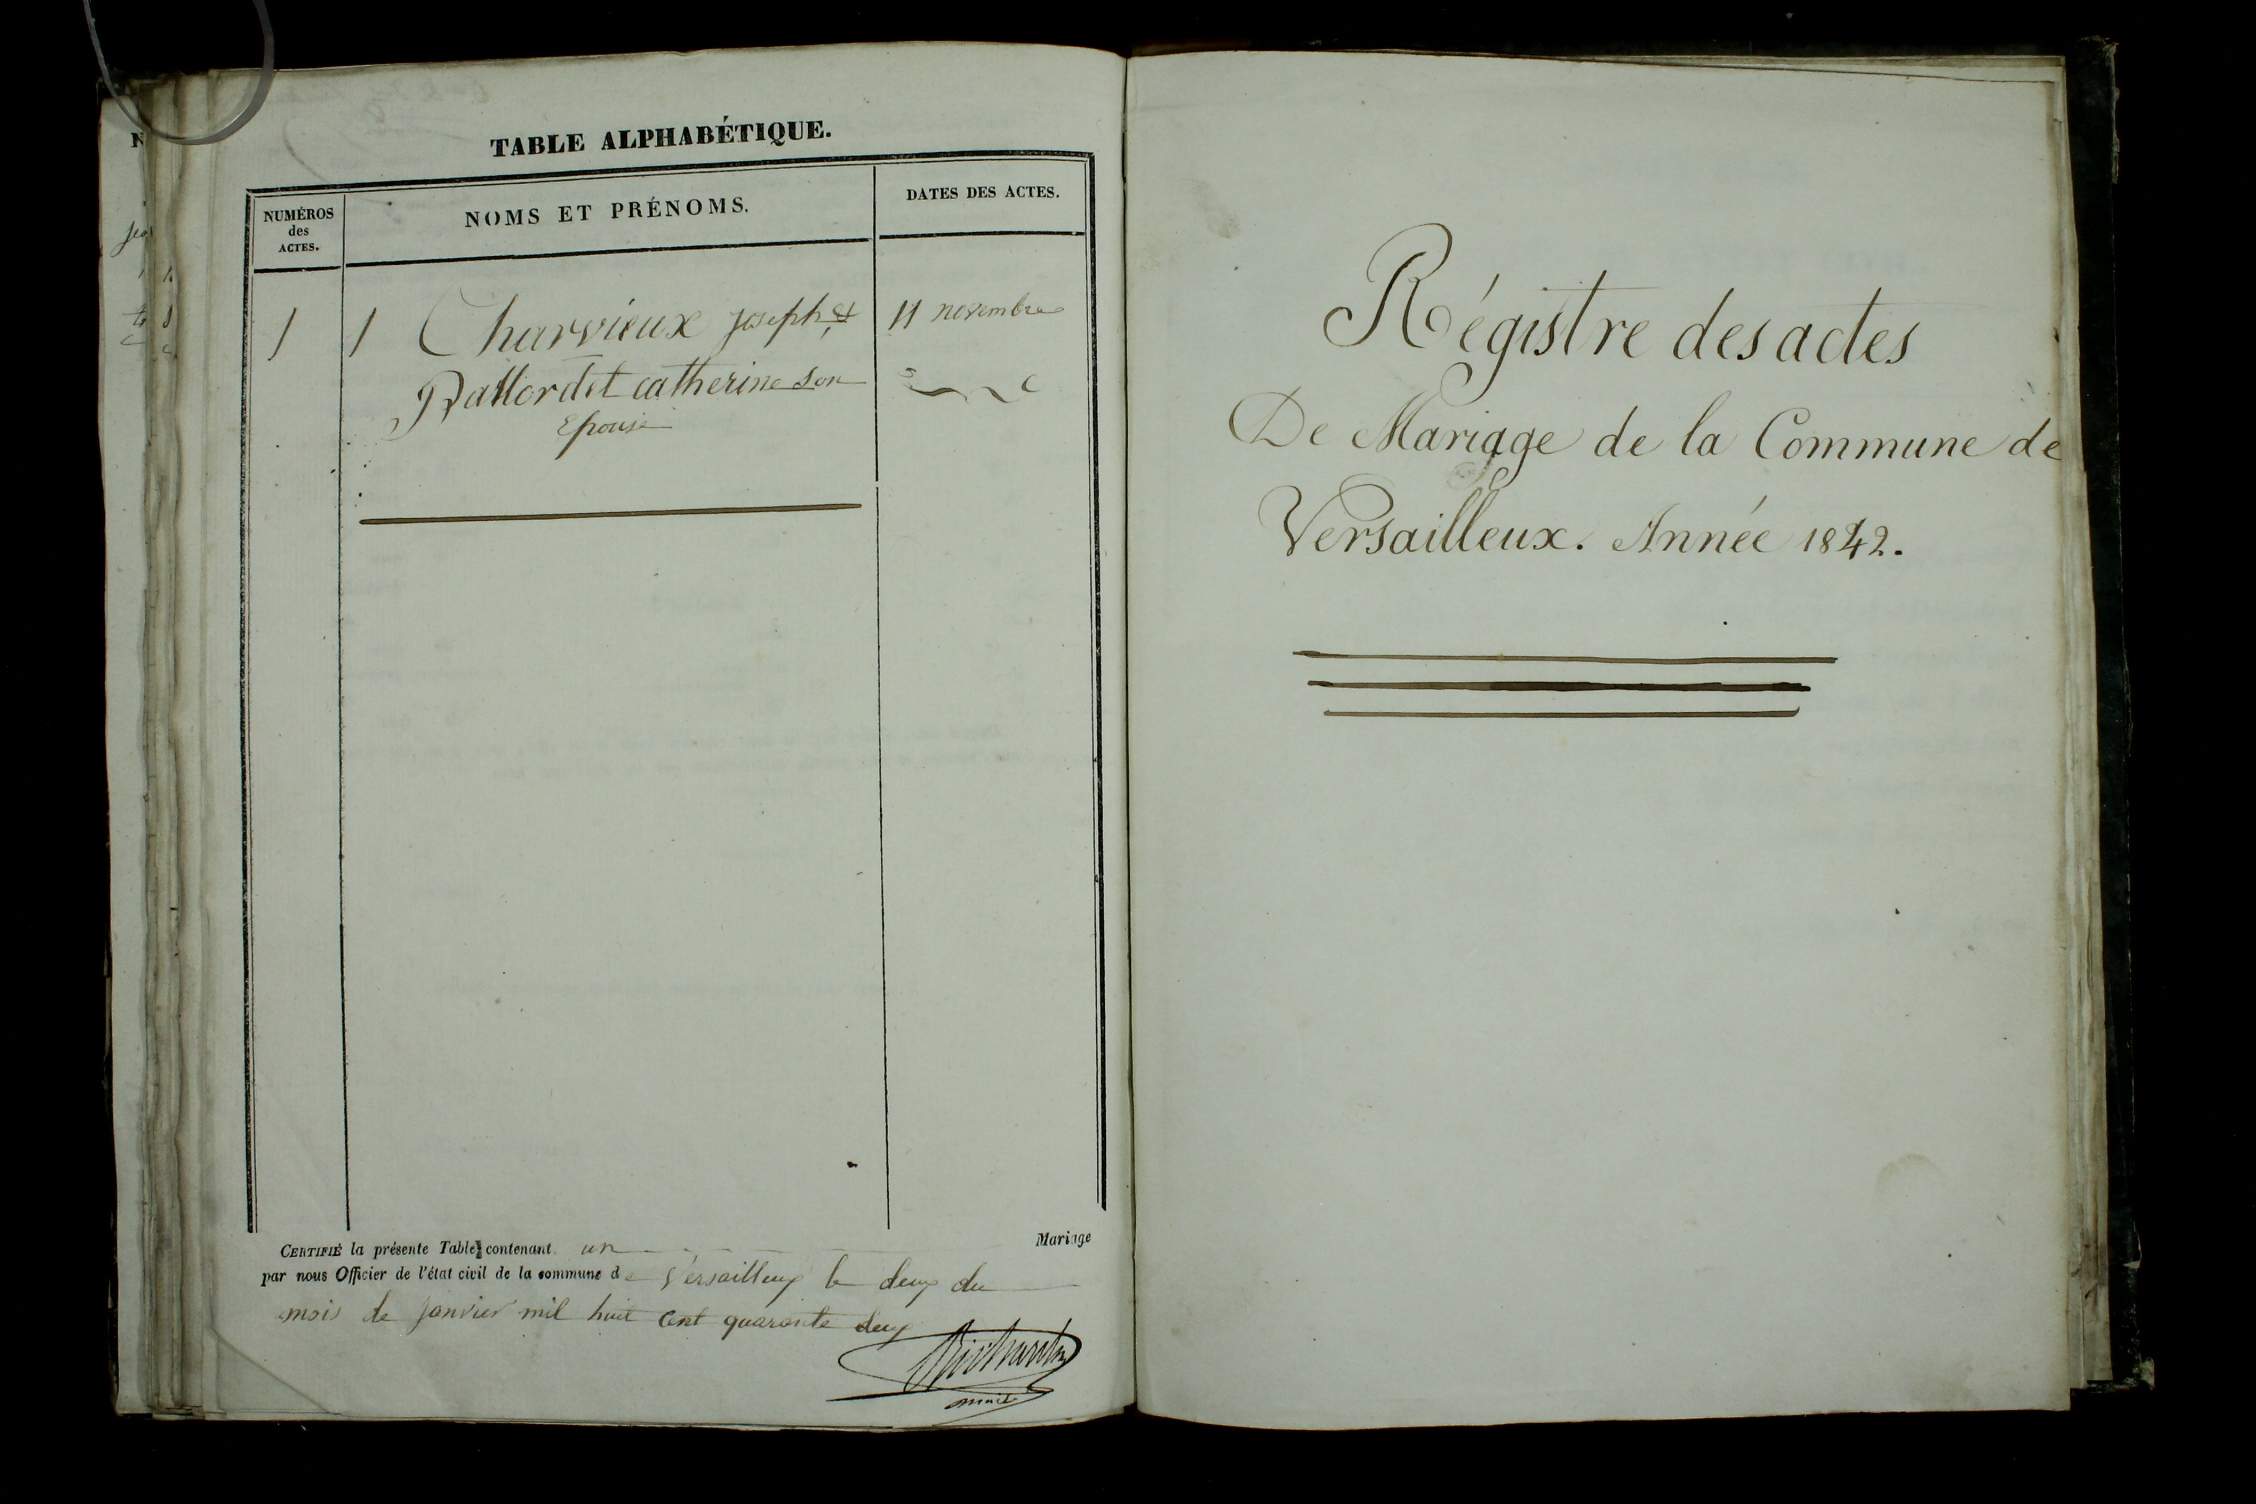 TABLE ALPHABÉTIQUE.
NUMÉROS
des
ACTES.
NOMS ET PRÉNOMS.
DATES DES ACTES.
1 1 Charvieux joseph, et 11 novembre
catherine son
Epouse
CERTIFIÉ la présente Table contenant un
Mariage
par nous Officier de l'état civil de la commune de Versailleux le deux du
mois de janvier mil huit cent quarante deux
maire
Régistre des actes
De Mariage de la Commune de
Versailleux. Année 1842.